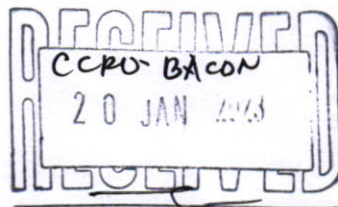 RECEIVED
CCRO-BACON
20 JAN 2023
RECEIVED